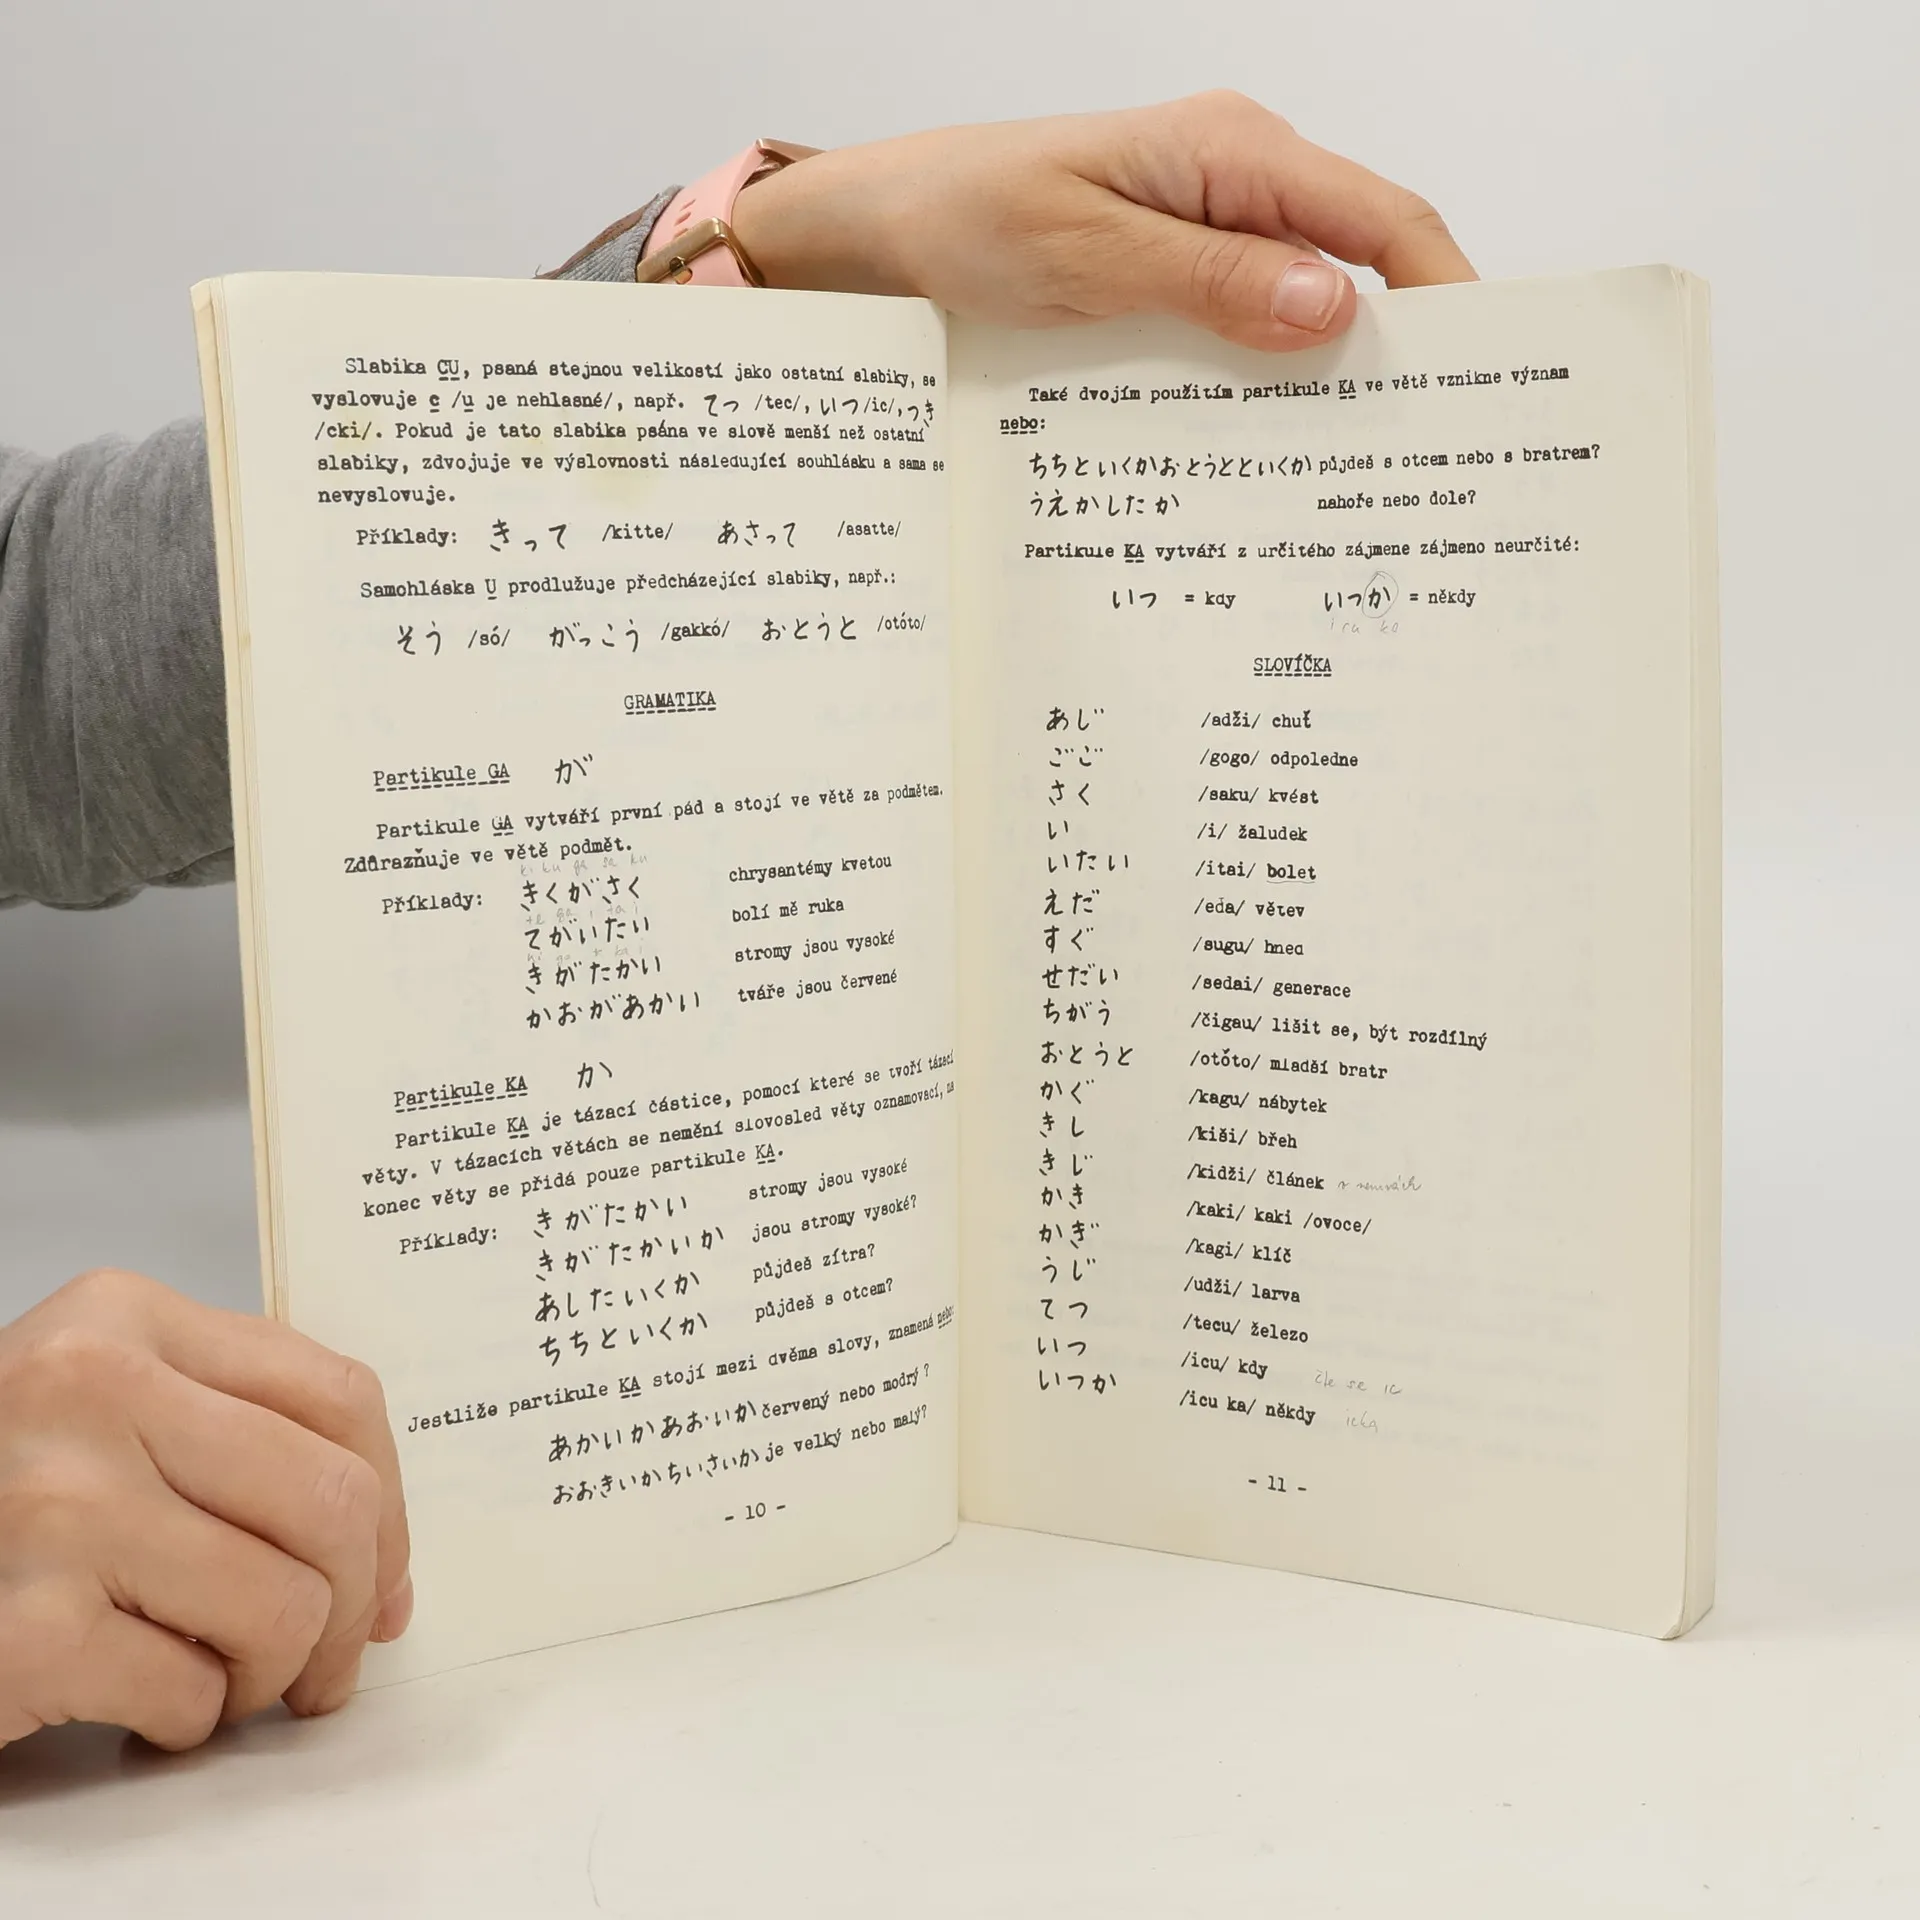 Slabika CU, psaná stejnou velikostí jako ostatní slabiky, se
vyslovuje c /u je nehlasné/, např. てつ /tec/, いつ /ic/, つき
/cki/. Pokud je tato slabika psána ve slově menší než ostatní
slabiky, zdvojuje ve výslovnosti následující souhlásku a sama se
nevyslovuje.
Příklady: きって /kitte/ あさって /asatte/
Samohláska U prodlužuje předcházející slabiky, např.:
そう /só/ がっこう /gakkó/ おとうと /otóto/
GRAMATIKA
Partikule GA が
Partikule GA vytváří první pád a stojí ve větě za podmětem.
Zdůrazňuje ve větě podmět.
ki ku ga sa ku
Příklady: きくがさく chrysantémy kvetou
te ga i ta i
てがいたい bolí mě ruka
きがたかい stromy jsou vysoké
かおがあかい tváře jsou červené
Partikule KA か
Partikule KA je tázací částice, pomocí které se tvoří tázací
věty. V tázacích větách se nemění slovosled věty oznamovací, na
konec věty se přidá pouze partikule KA.
Příklady: きがたかい stromy jsou vysoké
きがたかいか jsou stromy vysoké?
あしたいくか půjdeš zítra?
ちちといくか půjdeš s otcem?
Jestliže partikule KA stojí mezi dvěma slovy, znamená nebo:
あかいかあおいか červený nebo modrý?
おおきいかちいさいか je velký nebo malý?
- 10 -
Také dvojím použitím partikule KA ve větě vznikne význam
nebo:
ちちといくかおとうとといくか půjdeš s otcem nebo s bratrem?
うえかしたか nahoře nebo dole?
Partikule KA vytváří z určitého zájmene zájmeno neurčité:
いつ = kdy いつか = někdy
SLOVÍČKA
あじ /adži/ chuť
ごご /gogo/ odpoledne
さく /saku/ kvést
い /i/ žaludek
いたい /itai/ bolet
えだ /eda/ větev
すぐ /sugu/ hned
せだい /sedai/ generace
ちがう /čigau/ lišit se, být rozdílný
おとうと /otóto/ mladší bratr
かぐ /kagu/ nábytek
きし /kiši/ břeh
きじ /kidži/ článek
かき /kaki/ kaki /ovoce/
かぎ /kagi/ klíč
うじ /udži/ larva
てつ /tecu/ železo
いつ /icu/ kdy čte se ic
いつか /icu ka/ někdy icka
- 11 -